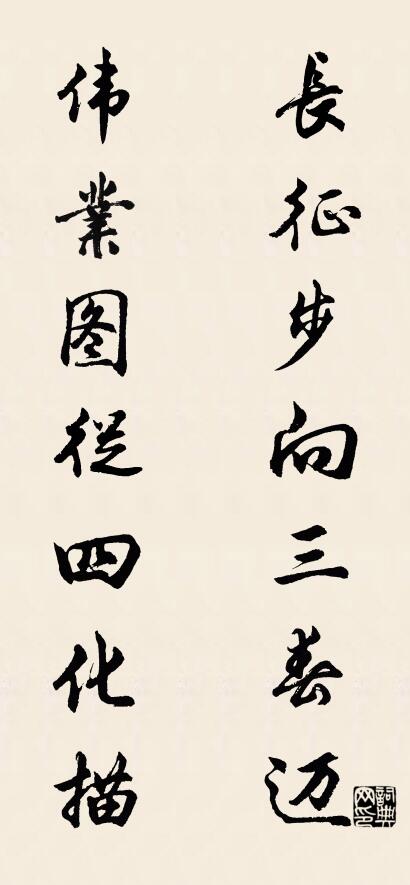 長征步向三春迈
伟業图從四化描
詞典网印